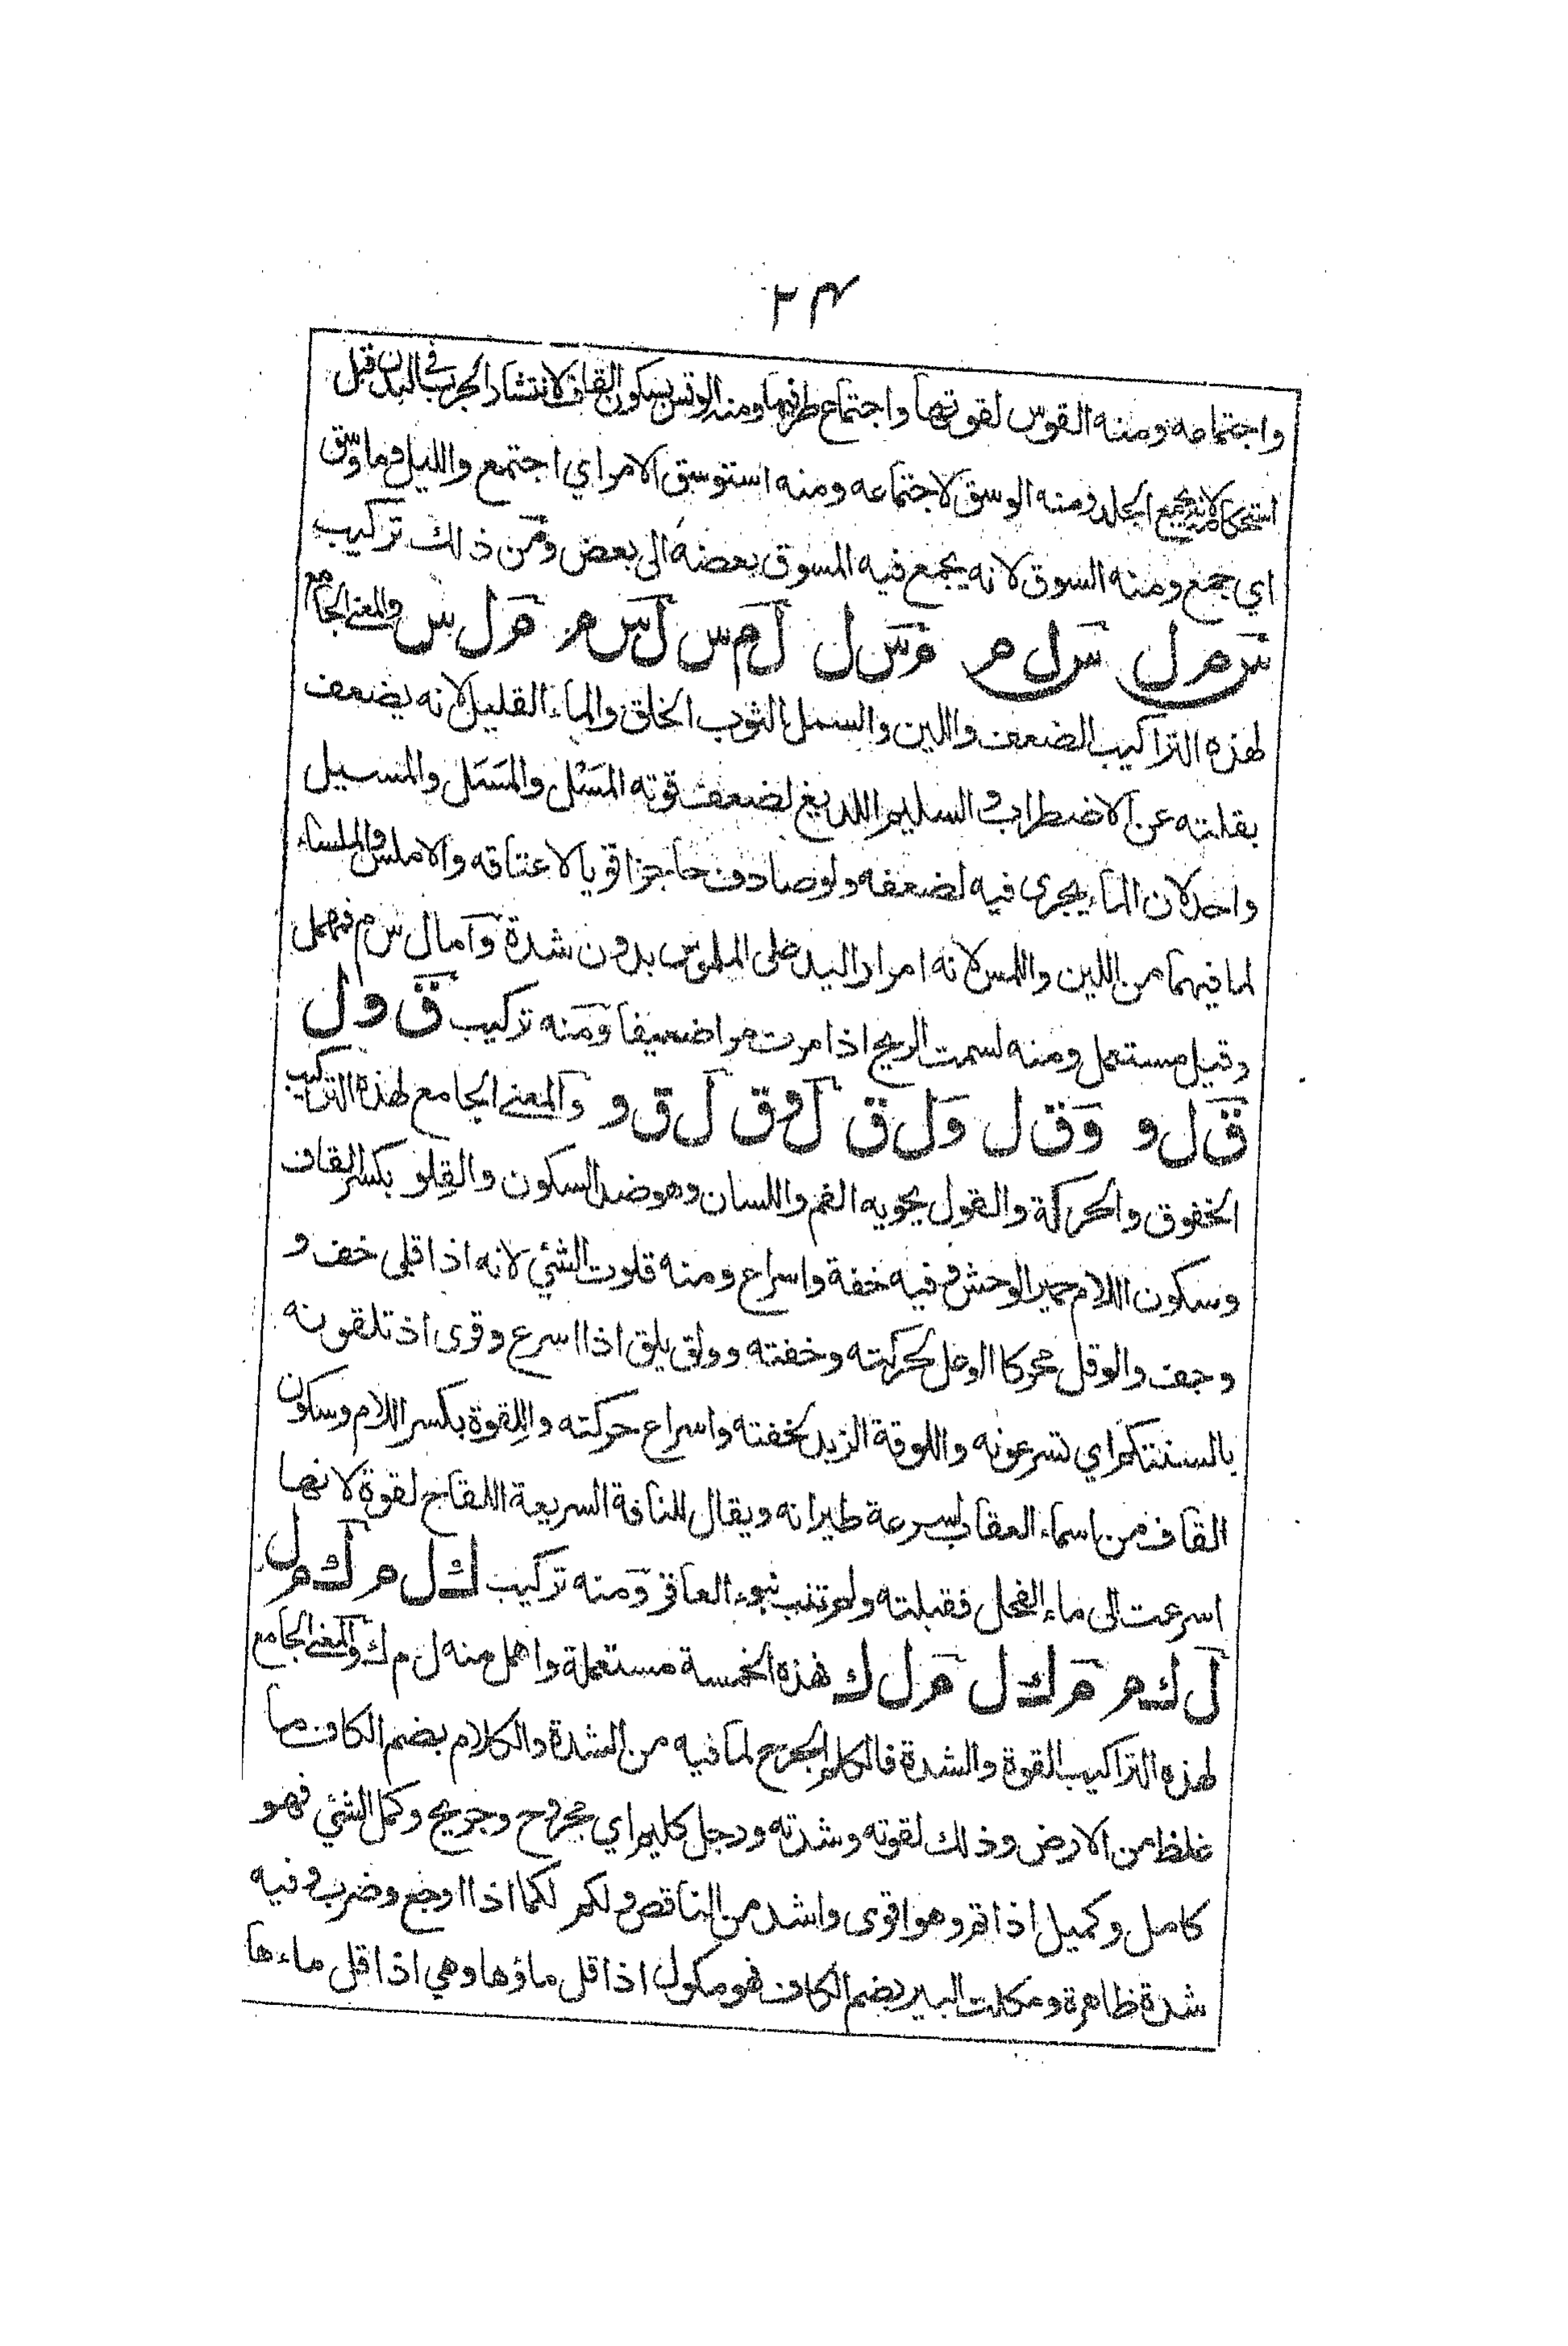 ٢٣
واجتماعه ومنه القوس لقوتها واجتماع طرفيها ومنه الوقس بسكون القاف لانتشار الجرب في البدن قبل
استحكامه لانه يجمع الجلد ومنه الوسق لاجتماعه ومنه استوسق الامر اي اجتمع والليل وما وسق
اي جمع ومنه السوق لانه يجمع فيه المسوق بعضه الى بعض ومن ذلك تركيب
س م ل س ل م م س ل ل م س ل س م م ل س والمعنى الجامع
لهذه التراكيب الضعف واللين والسمل الثوب الخلق والماء القليل لانه يضعف
بقلته عن الاضطراب والسليم اللديغ لضعف قوته المَسْل والمَسَل والمسيل
واحد لان الماء يجرى فيه لضعفه ولو صادف حاجزا قويا لاعتاقه والاملس والملساء
لما فيهما من اللين واللمس لانه امرار اليد على الملموس بدون شدة وآما ل س م فمهمل
وقيل مستعمل ومنه لسمت الريح اذا مرت مرا ضعيفا ومنه تركيب ق و ل
ق ل و و ق ل و ل ق ل و ق ل ق و والمعنى الجامع لهذه التراكيب
الخفوق والحركة والقول يحويه الفم واللسان وهو ضد السكون والقِلو بكسر القاف
وسكون اللام حمير الوحش وفيه خفة واسراع ومنه قلوت الشئي لانه اذا قلى خف و
وجف والوقل محركا الوعل لحركته وخفته وولق يلق اذا اسرع وقرى اذ تلقونه
بالسنتكم اي تسرعونه واللوقة الزبد لخفته واسراع حركته واللِقوة بكسر اللام وسكون
القاف من اسماء العقاب لسرعة طيرانه ويقال للناقة السريعة اللقاح لقوة لانها
اسرعت الى ماء الفحل فقبلته ولم تنب نبوء العاقر ومنه تركيب ك ل م ك م ل
ل ك م م ك ل م ل ك فهذه الخمسة مستعملة واهمل منه ل م ك والمعنى الجامع
لهذه التراكيب القوة والشدة فالكلم الجرح لما فيه من الشدة والكلام بضم الكاف ما
غلظ من الارض وذلك لقوته وشدته ورجل كليم اي مجروح وجريح وكمل الشئي فهو
كامل وكميل اذا تم وهو اقوى واشد من الناقص ولكم لكما اذا اوجع وضرب وفيه
شدة ظاهرة ومكلت البير بضم الكاف فهو مكول اذا قل ماؤها وهي اذا قل ماءها